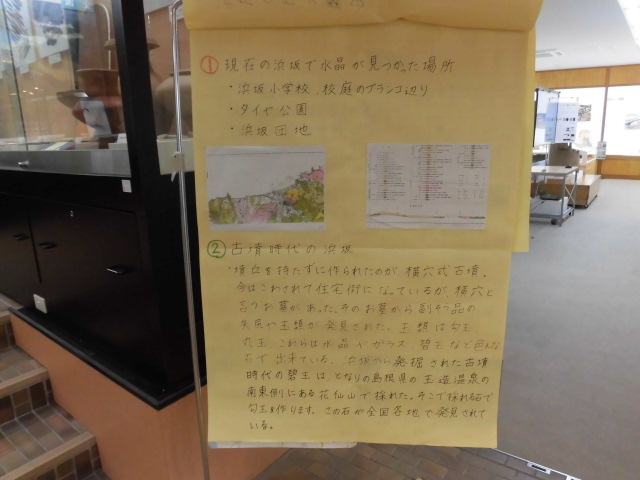 ① 現在の浜坂で水晶が見つかった場所
・浜坂小学校、校庭のブランコ辺り
・タイヤ公園
・浜坂団地
② 古墳時代の浜坂
・墳丘を持たずに作られたのが、横穴式古墳。
今はこわされて住宅街になっているが、横穴と
言うお墓があった。そのお墓から副そう品の
矢尻や玉類が発見された。玉類は勾玉、
丸玉、これらは水晶やガラス、碧玉など色んな
石で出来ている。浜坂から発掘された古墳
時代の碧玉は、となりの島根県の玉造温泉の
南東側にある花仙山で採れた。そこで採れる石で
勾玉を作ります。この石が全国各地で発見されて
いる。